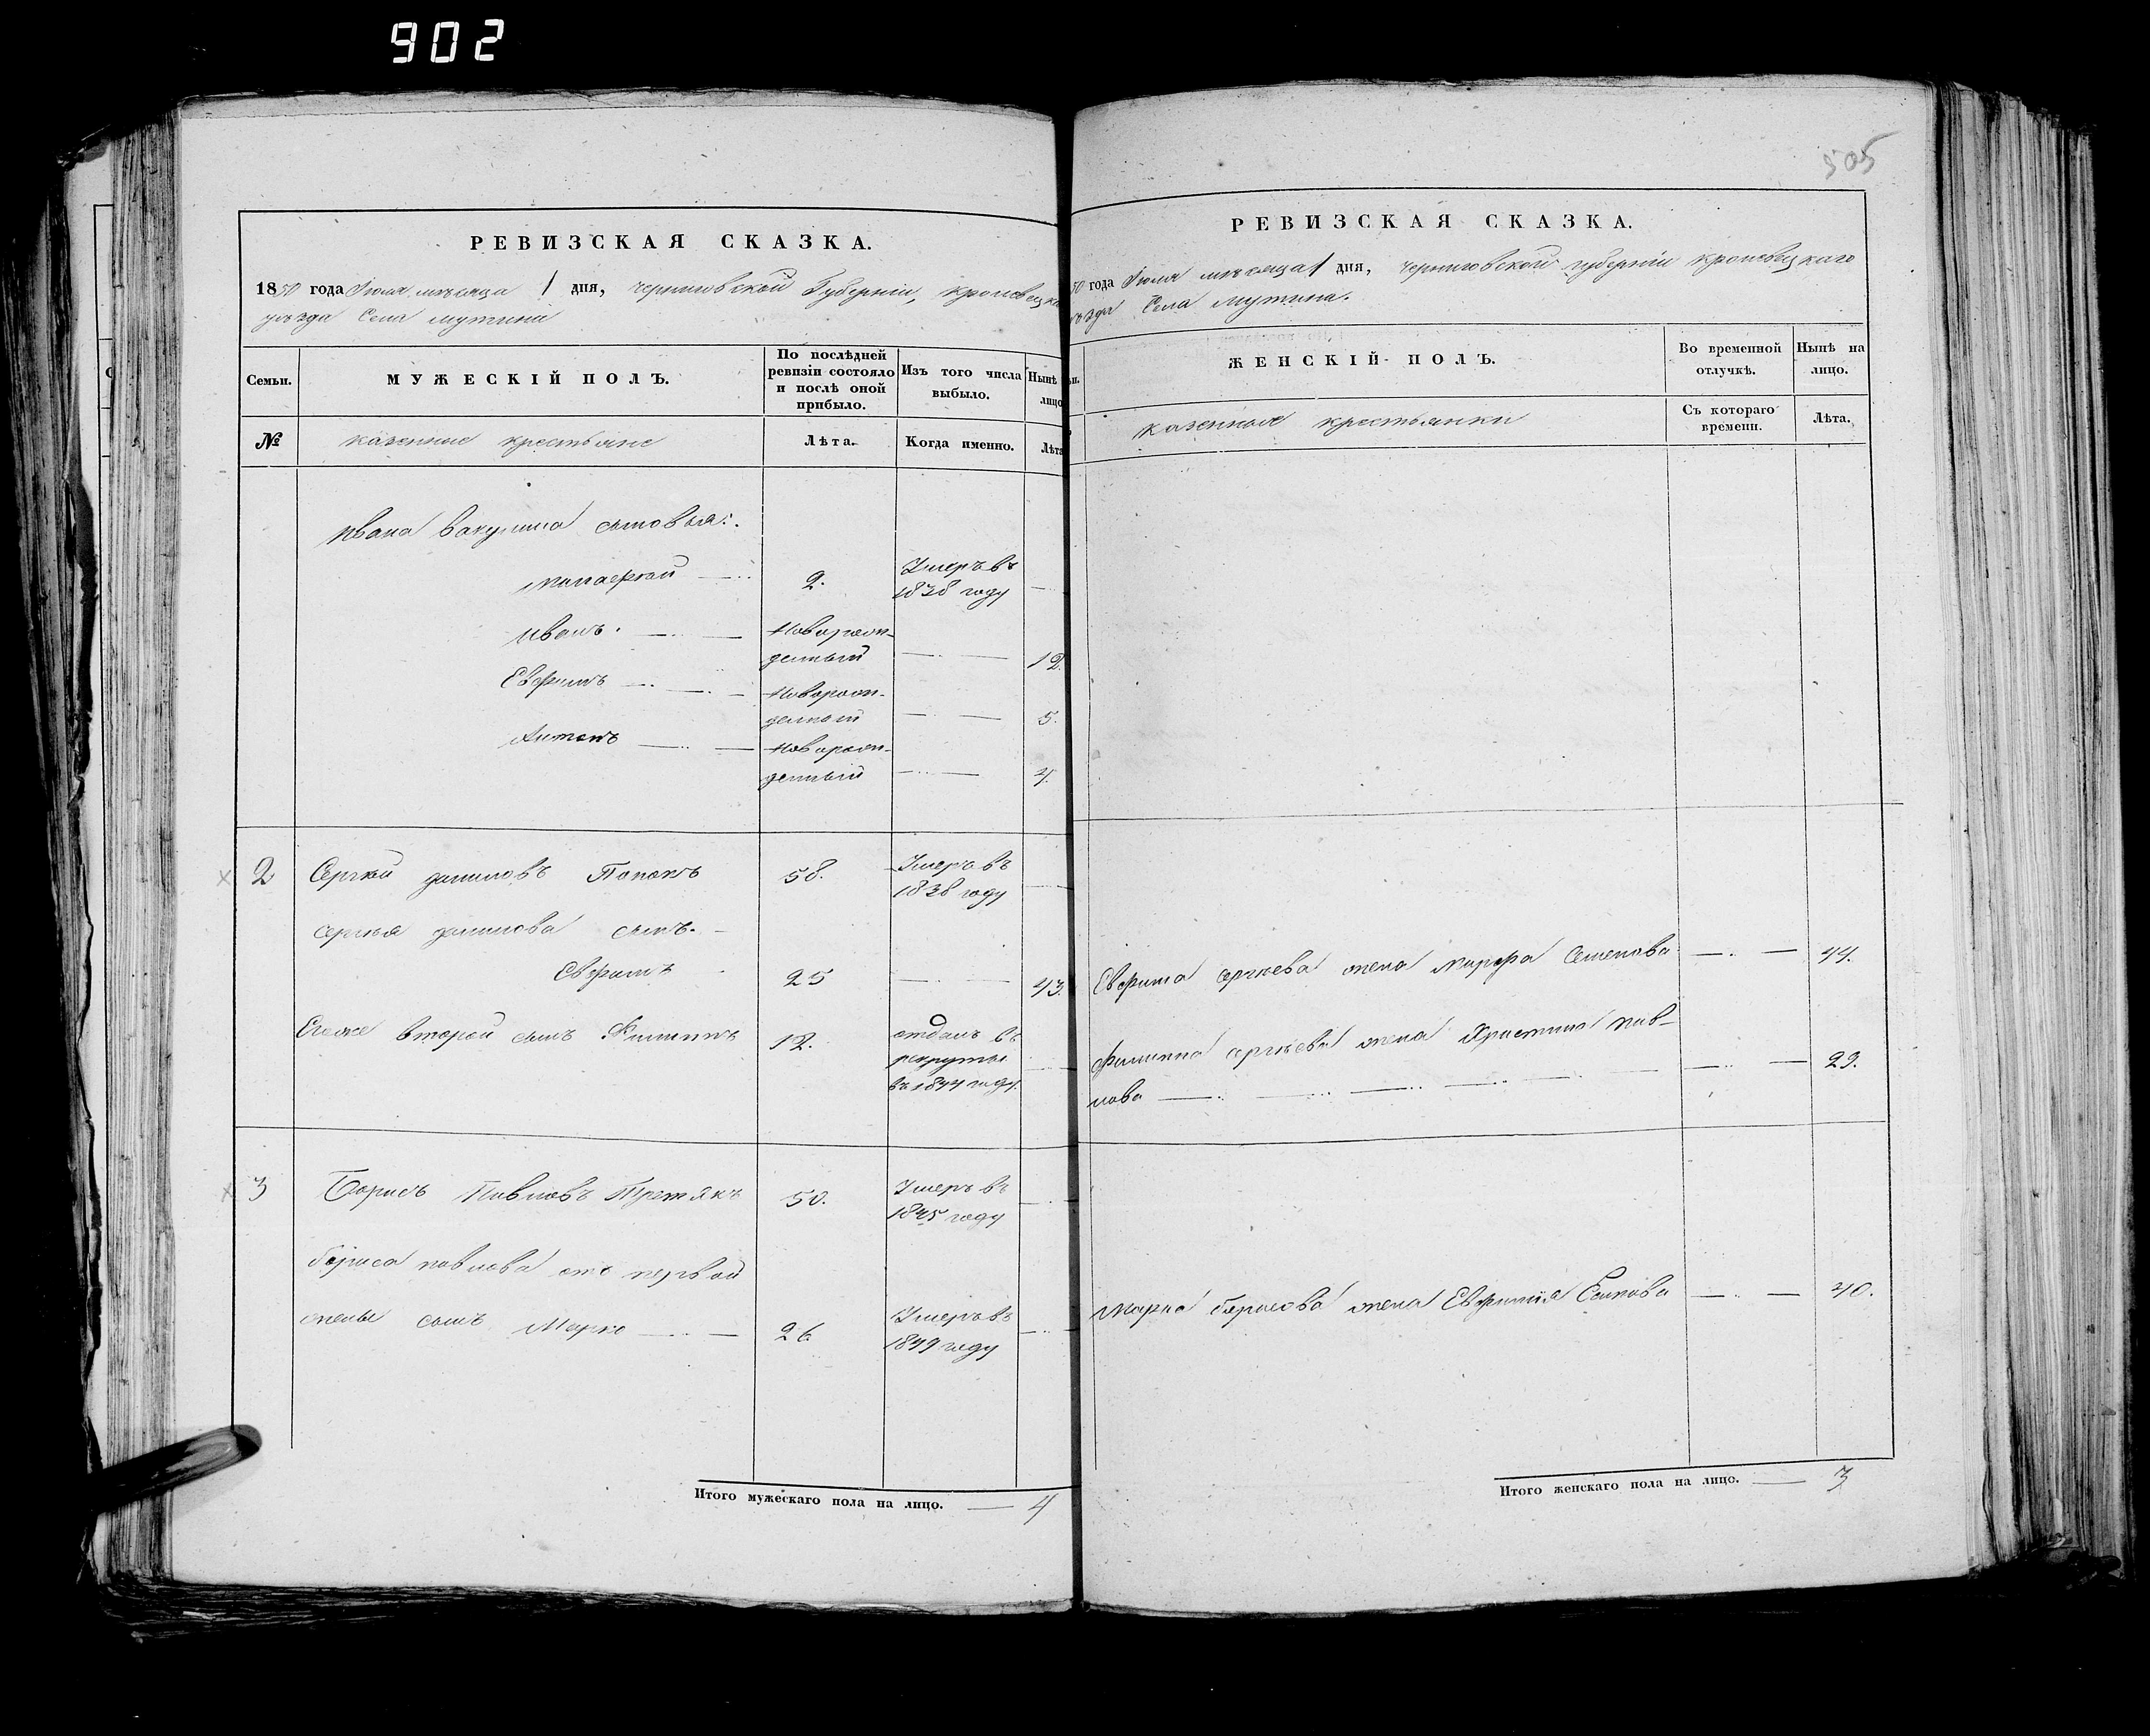 902
505
РЕВИЗСКАЯ СКАЗКА.
1850 года Іюля мѣсяца 1 дня, черниговской Губерніи, кролевецка
уѣзда Села мутина
Семьи.
МУЖЕСКІЙ ПОЛЪ.
По послѣдней ревизіи состояло и послѣ оной прибыло.
Изъ того числа выбыло.
Нынѣ лицо
№
казенные крестьяне
Лѣта.
Когда именно.
Лѣта
Ивана Вакулина сыновья:
2.
Умеръ въ
1838 году
Иванъ
Новорож-
денный
12.
Евфимъ
Новорож-
денный
5.
Антонъ
Новорож-
денный
4.
2
Сергѣй даниловъ Попокъ
58.
Умеръ въ
1838 году
Сергѣя данилова сынъ.
Евфимъ
25
43.
Егоже второй сынъ Филиппъ
12.
отданъ въ
рекруты
въ 1844 году.
3
Борисъ Павловъ Третякъ
50.
Умеръ въ
1845 году
бориса павлова отъ первой
жены сынъ Марко
26
Умеръ въ
1849 году
Итого мужескаго пола на лицо. 4
РЕВИЗСКАЯ СКАЗКА.
50 года Іюля мѣсяца 1 дня, черниговской губерніи кролевецкаго
ѣзда Села мутина.
ЖЕНСКІЙ ПОЛЪ.
Во временной отлучкѣ.
Нынѣ на лицо.
казенныя крестьянки
Съ котораго времени.
Лѣта.
Евфима сергѣева жена марфа Семенова
44.
Филиппа сергѣева жена Христина пав-
лова
29.
Марка борисова жена Евфимія
40.
Итого женскаго пола на лицо. 3